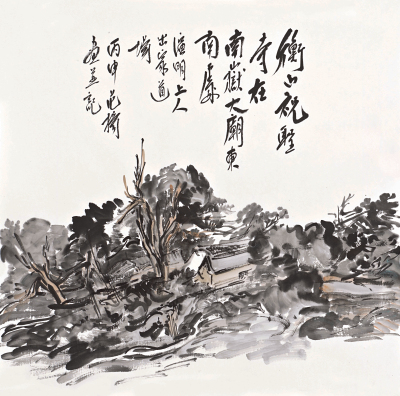 衡山祝聖
寺在
南嶽大廟東
南麓
演明上人
出家道
場
丙申范揚
畫並記